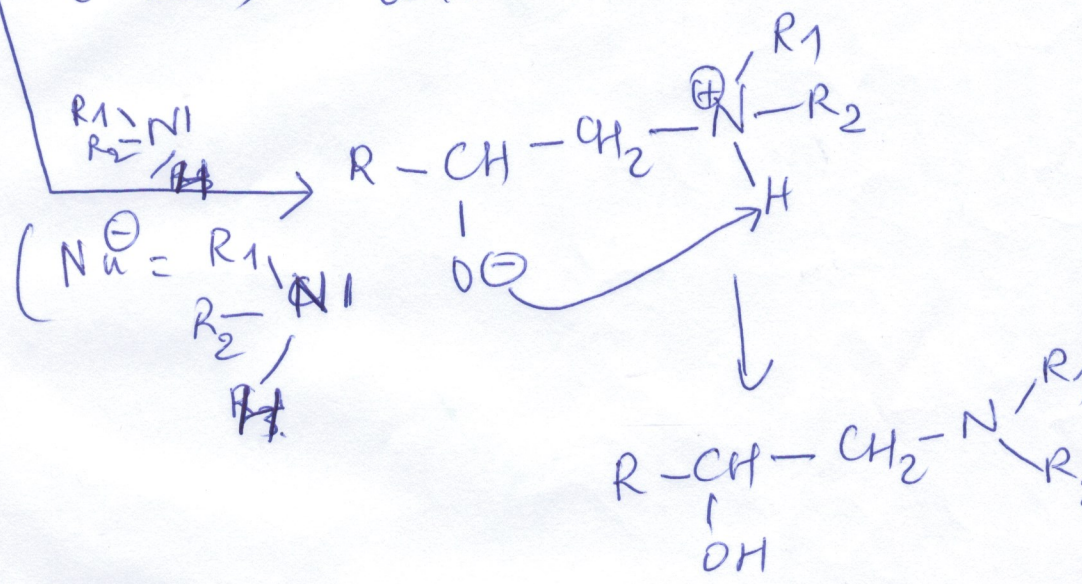 R1
R2 N H
R – CH – CH2 – N⊕ R1
R2
H
O⊖
(Nu⊖ = R1
R2 – N
H
R – CH – CH2 – N R
R
OH